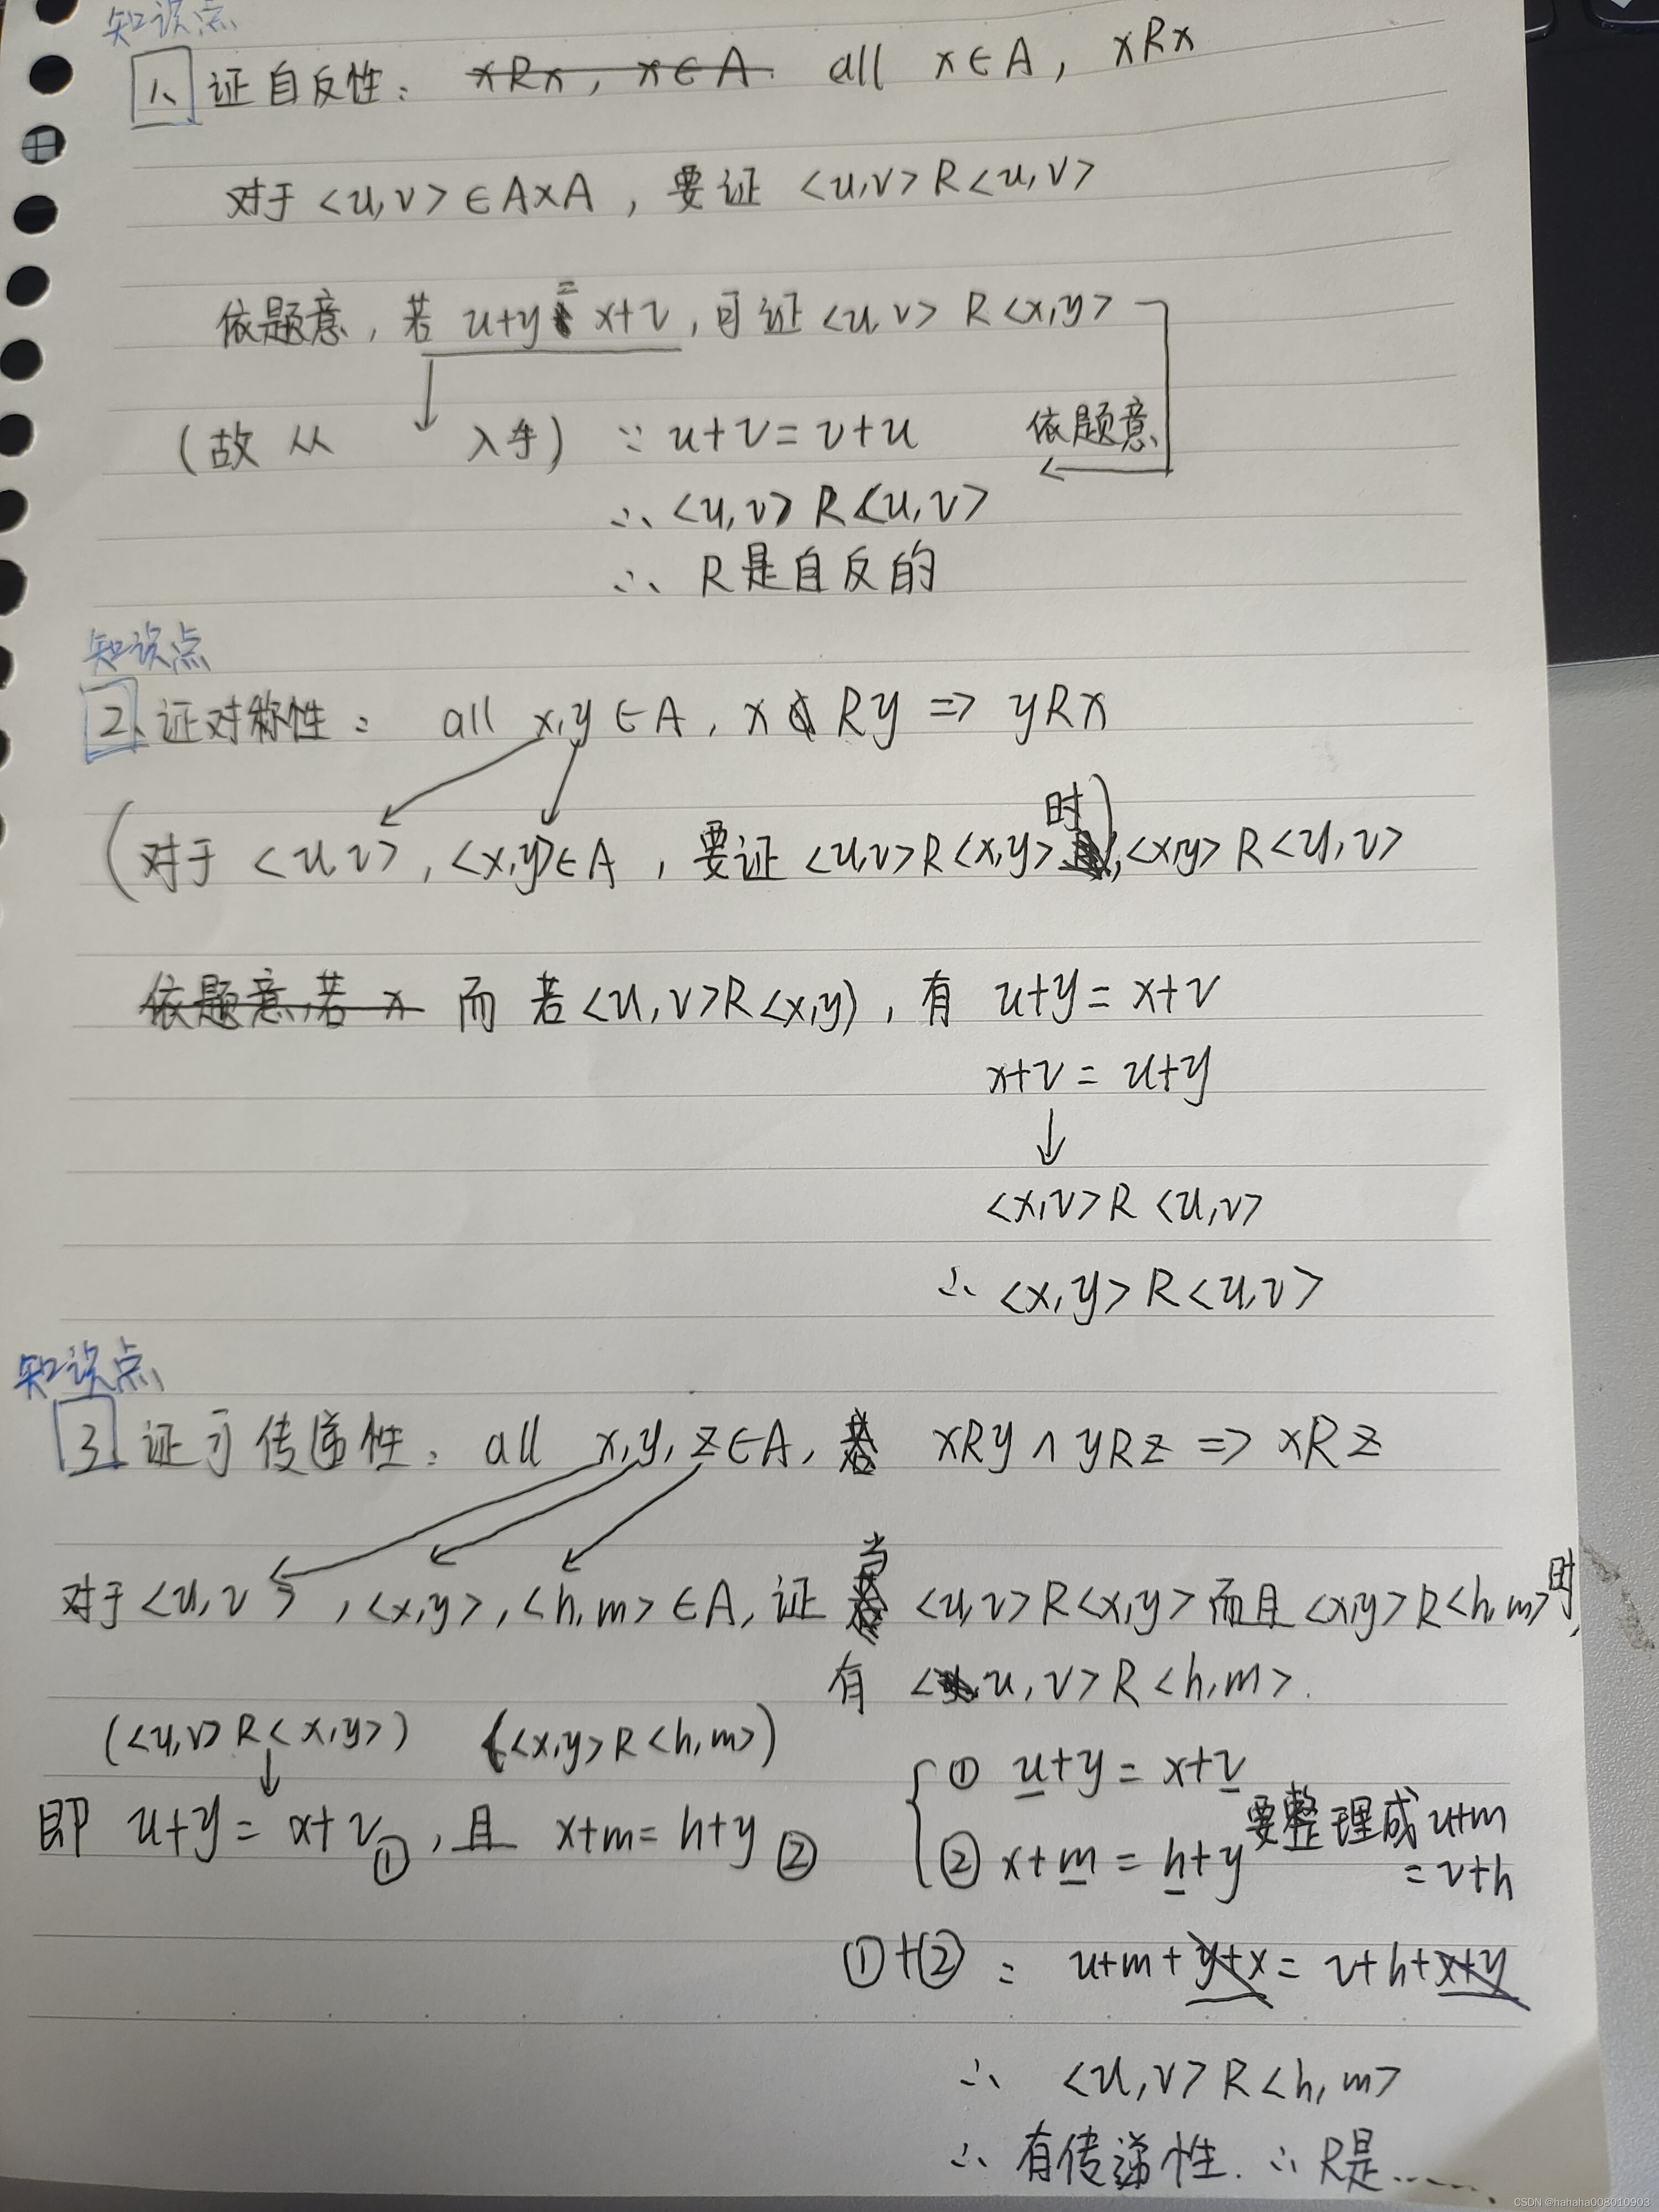 知识点
1、证自反性： xRx，x∈A. all x∈A，xRx
对于<u,v>∈A×A，要证 <u,v>R<u,v>
依题意，若 u+y = x+v，可证<u,v> R<x,y>
(故从 入手) ∵ u+v=v+u 依题意
∴ <u,v> R<u,v>
∴ R是自反的
知识点
2、证对称性： all x,y∈A，x Ry => yRx
(对于 <u,v>，<x,y>∈A，要证 <u,v>R<x,y>时)，<x,y> R<u,v>
依题意，若 x 而 若<u,v>R<x,y)，有 u+y=x+v
x+v = u+y
<x,v>R <u,v>
∴ <x,y>R<u,v>
知识点
3、证可传递性： all x,y,z∈A， xRy ∧ yRz => xRz
对于<u,v>，<x,y>，<h,m>∈A，证 当 <u,v>R<x,y>而且<x,y>R<h,m>时，
有 <u,v>R<h,m>.
(<u,v>R<x,y>) (<x,y>R<h,m>)
① u+y = x+v
即 u+y= x+v①，且 x+m=h+y ②
要整理成u+m
② x+m = h+y =v+h
①+② : u+m+y+x= v+h+x+y
∴ <u,v>R<h,m>
∴ 有传递性. ∴ R是……
CSDN @hahaha008010903